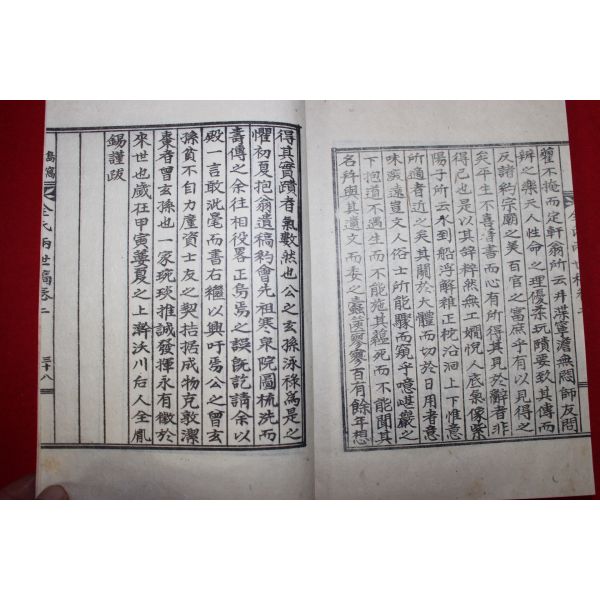 蘊不掩而定軒翁所云井渫寧澹無悶師友問
辨之樂天人性命之理優柔玩賾要致其傳而
反諸約宗廟之美百官之富庶乎有以見得之
矣平生不喜著書而心有所得其見於辭者非
得已也是以其辭粹然無工嫺悅人底氣像紫
陽子所云水到船浮解維正柁沿洄上下惟意
所適者近之矣其關於大體而切於日用者意
味深遠豈文人俗士所能驟而窺乎噫嵁巖之
下抱道不遇生而不能施其蘊死而不能聞其
名幷與其遺文而委之蠹篋寥寥百有餘年想
得其實蹟者氣數然也公之玄孫泳祿爲是之
懼初夏抱翁遺稿約會先祖寒泉院圖梳洗而
壽傳之余往相役畧正烏焉之誤旣訖請余以
殿一言敢泚毫而書右繼以興吁焉公之曾玄
孫貧不自力廑資士友之契拮据成物克敦潔
棗者曾玄孫也一家琬琰推誠發揮永有徵於
來世也歲在甲寅蔞夏之上澣沃川后人全胤
錫謹跋
島窩
全氏兩世稿卷二
三十八